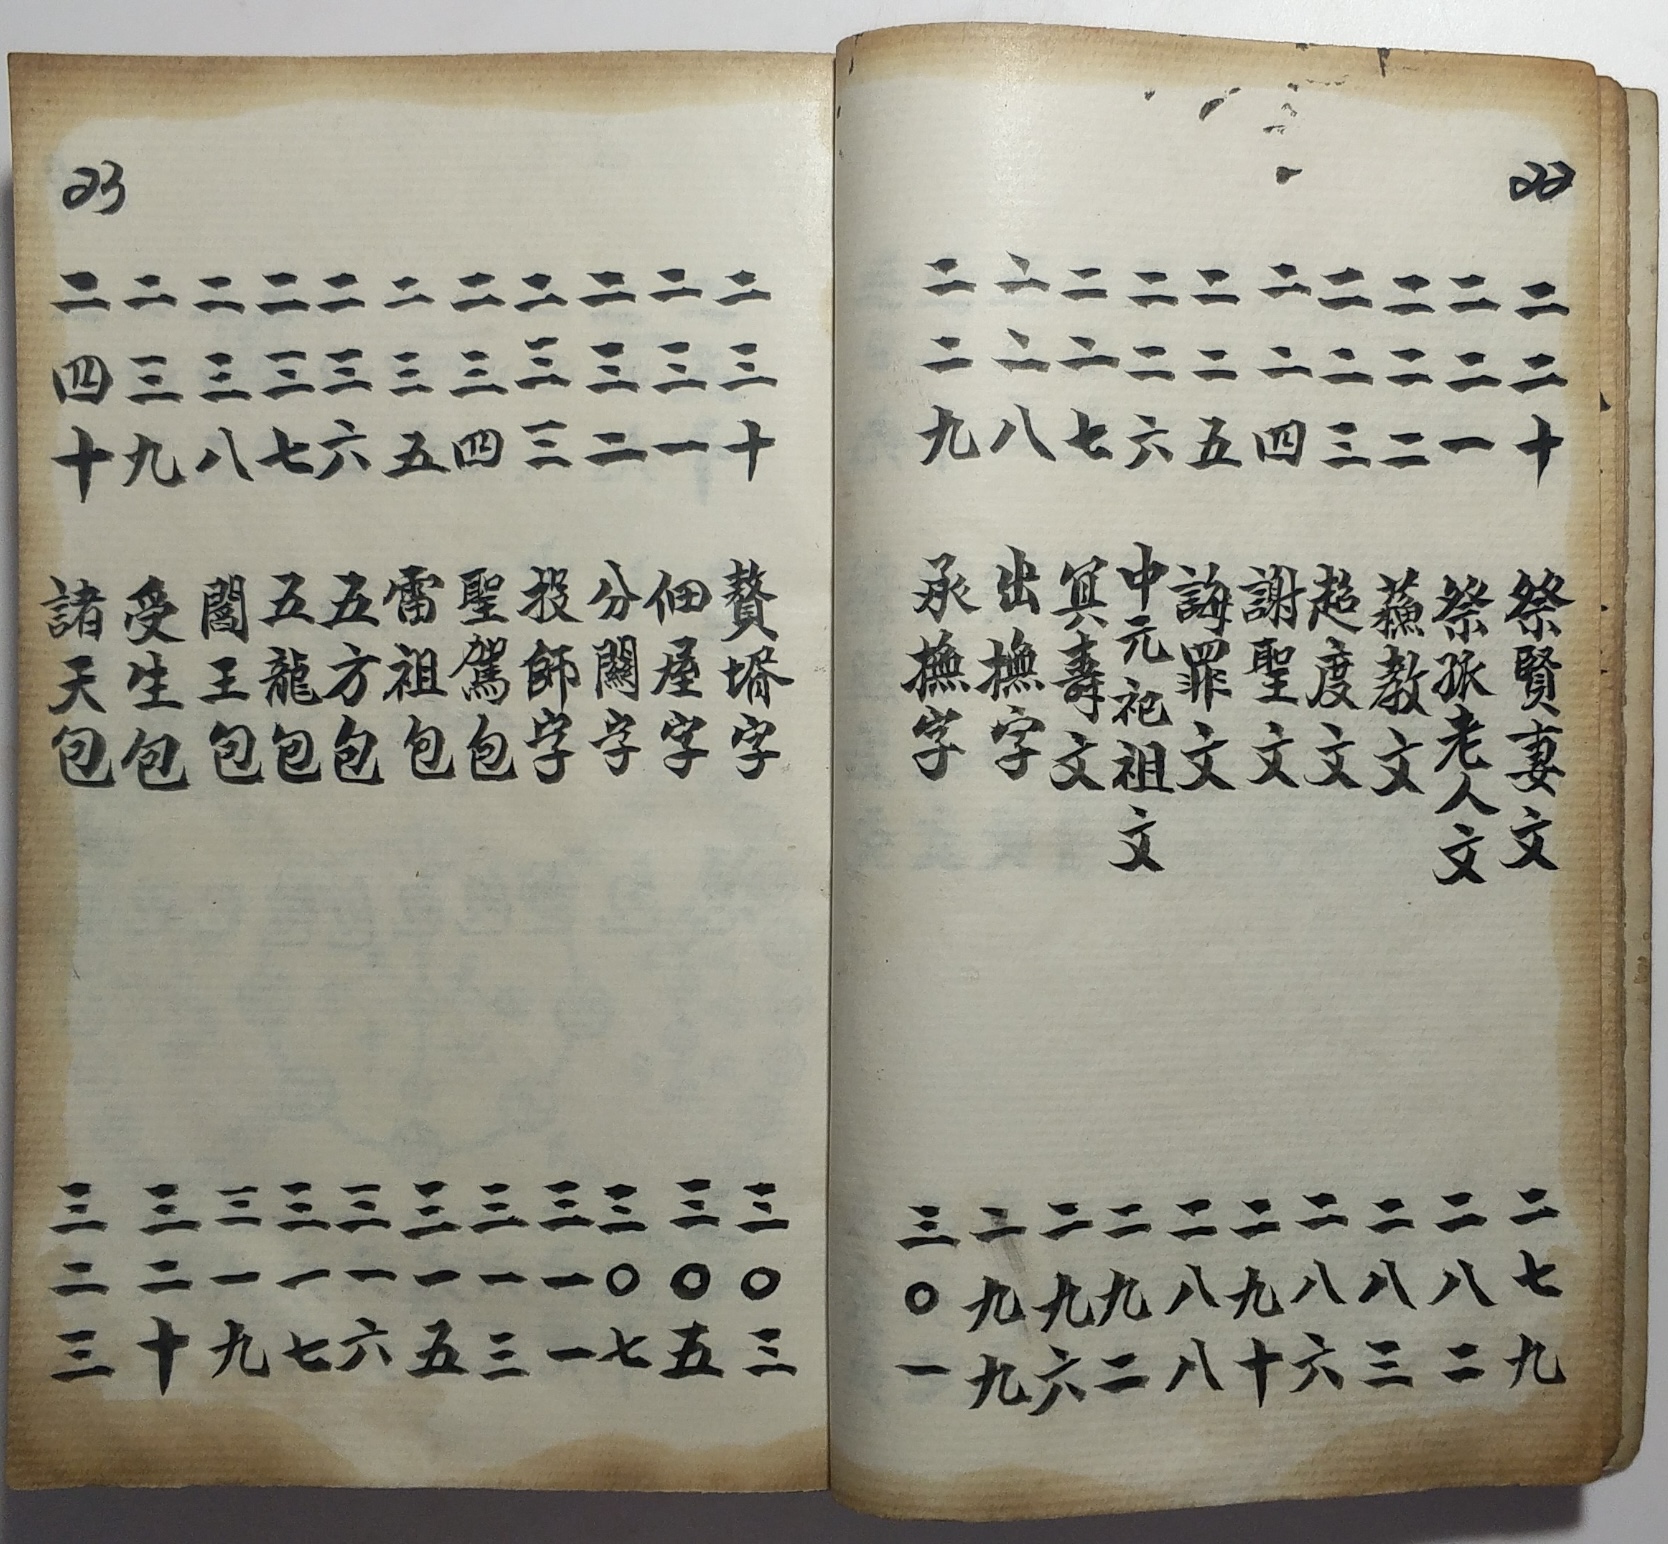 22
二二十 祭賢妻文 二七九
二二一 祭孤老人文 二八二
二二二 蘓教文 二八三
二二三 超度文 二八六
二二四 謝聖文 二九十
二二五 誨罪文 二八八
二二六 中元祀祖文 二九二
二二七 冥壽文 二九六
二二八 出撫字 二九九
二二九 承撫字 三〇一
23
二三十 贅壻字 三〇三
二三一 佃屋字 三〇五
二三二 分關字 三〇七
二三三 投師字 三一一
二三四 聖駕包 三一三
二三五 雷祖包 三一五
二三六 五方包 三一六
二三七 五龍包 三一七
二三八 閻王包 三一九
二三九 受生包 三二十
二四十 諸天包 三二三